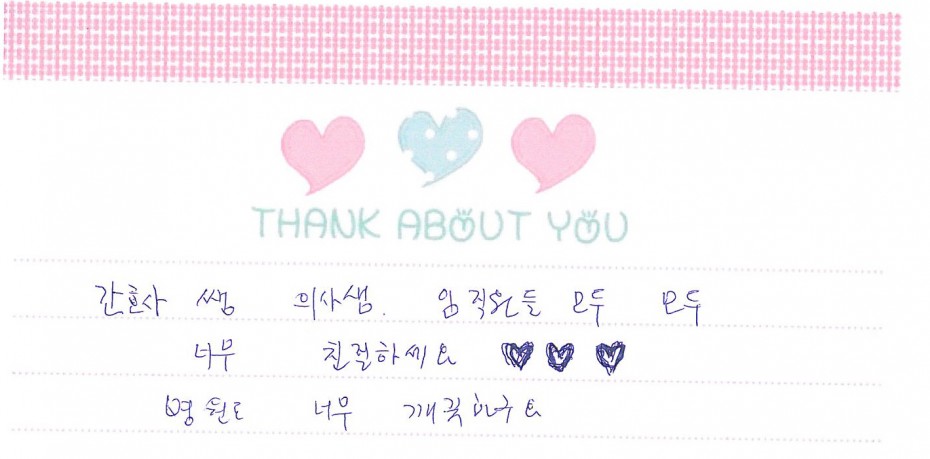 THANK ABOUT YOU
간호사 쌤 의사샘. 임직원들 모두 모두
너무 친절하세요
병원도 너무 깨끗하구요